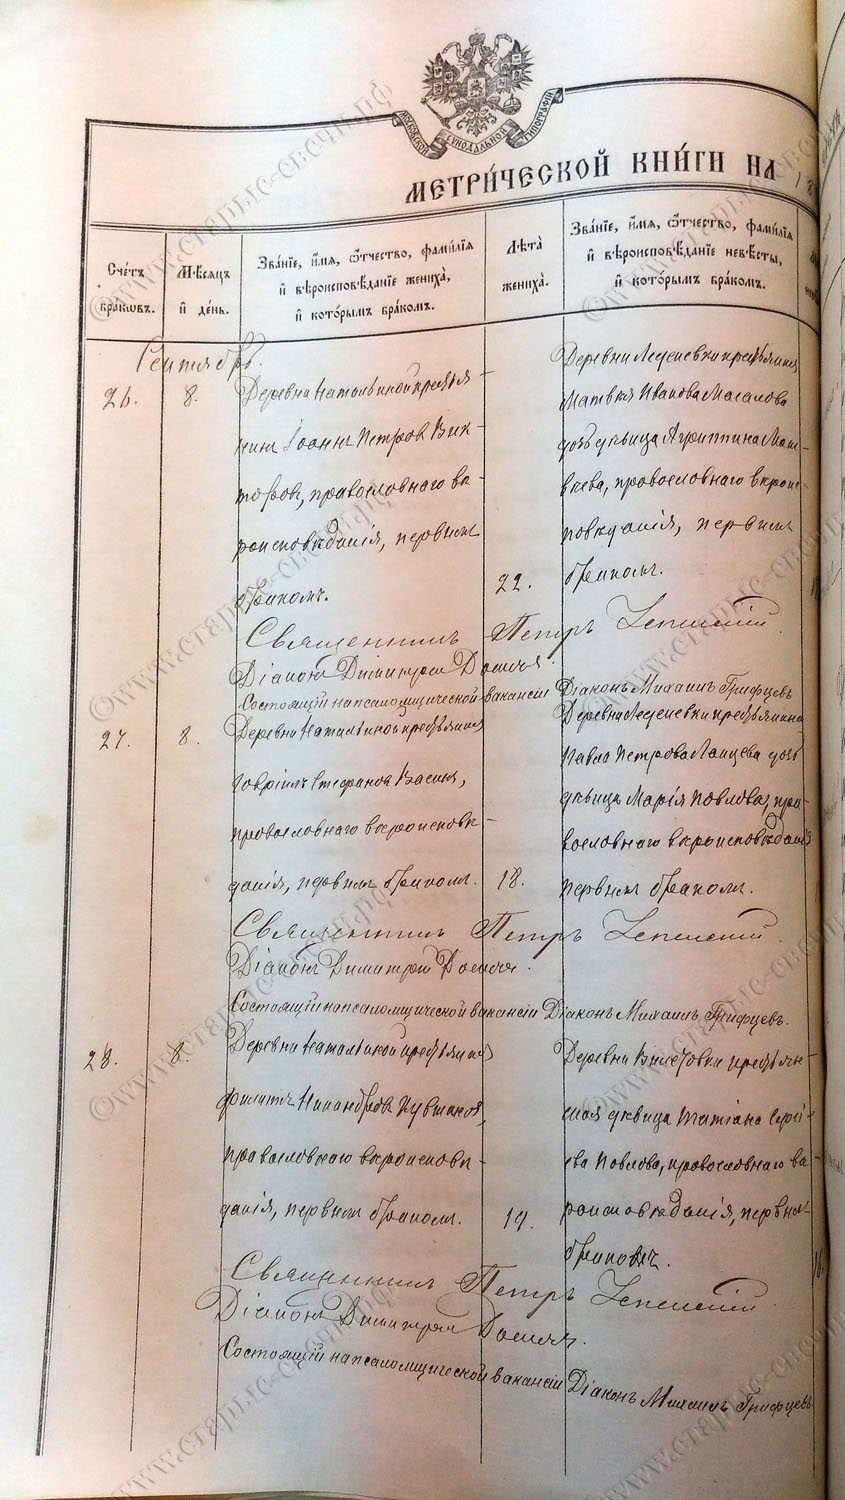 МОСКОВСКОЙ СѴНОДАЛЬНОЙ ТИПОГРАФІИ
МЕТРИ́ЧЕСКОЙ КНИ́ГИ НА 18
Сче́тъ браковъ.
Мѣсяцъ и де́нь.
Зва́ніе, и́мя, ѻ҆́тчество, фами́лїя и вѣроисповѣ́даніе жениха̀, и кото́рымъ бра́комъ.
Лѣта̀ жениха̀.
Зва́ніе, и́мя, ѻ҆́тчество, фами́лїя и вѣроисповѣ́даніе невѣ́сты, и кото́рымъ бра́комъ.
Сентябрь.
26.
8.
Деревни Натальиной крестья-
нинъ Іоаннъ Петровъ Вик-
торовъ, православнаго вѣ-
роисповѣданія, первымъ
бракомъ.
22.
Деревни крестьянина
Матвѣя Иванова Масалова
дочь дѣвица Агриппина Мат-
вѣева, православнаго вѣроис-
повѣданія, первымъ
бракомъ.
Священникъ Петръ
Діаконъ Димитрій
Состоящій на псаломщической вакансіи Діаконъ Михаилъ Грифцевъ
27.
8.
Деревни Натальиной крестьянинъ
Гавріилъ Стефановъ Васинъ,
православнаго вѣроисповѣ-
данія, первымъ бракомъ.
18.
Деревни крестьянина
Павла Петрова дочь
дѣвица Марія Павлова, пра-
вославнаго вѣроисповѣданія
первымъ бракомъ.
Священникъ Петръ
Діаконъ Димитрій
Состоящій на псаломщической вакансіи Діаконъ Михаилъ Грифцевъ.
28.
8.
Деревни Натальиной крестьянинъ
Филиппъ Никандровъ
православнаго вѣроисповѣ-
данія, первымъ бракомъ.
19.
Деревни крестьян-
ская дѣвица Татіана Сергі-
ева Павлова, православнаго вѣ-
роисповѣданія, первымъ
бракомъ.
16.
Священникъ Петръ
Діаконъ Димитрій
Состоящій на псаломщической вакансіи Діаконъ Михаилъ Грифцевъ
©www.старые-свечи.рф